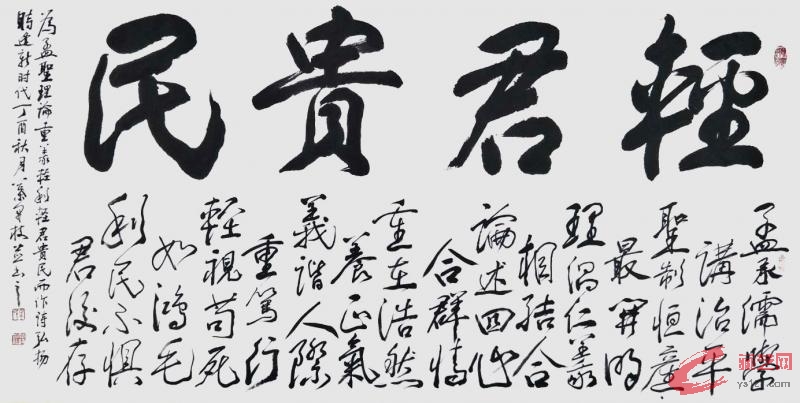 輕君貴民
孟承儒學
講治平
聖制恒產
最開明
理偶仁義
相結合
論述四也
合群情
重在浩然
養正氣
義諧人際
重篤行
輕視苟死
如鴻毛
利民不懼
君後存
為孟聖理論重義輕利輕君貴民而作詩弘揚
時建新时代丁酉秋月
ys12